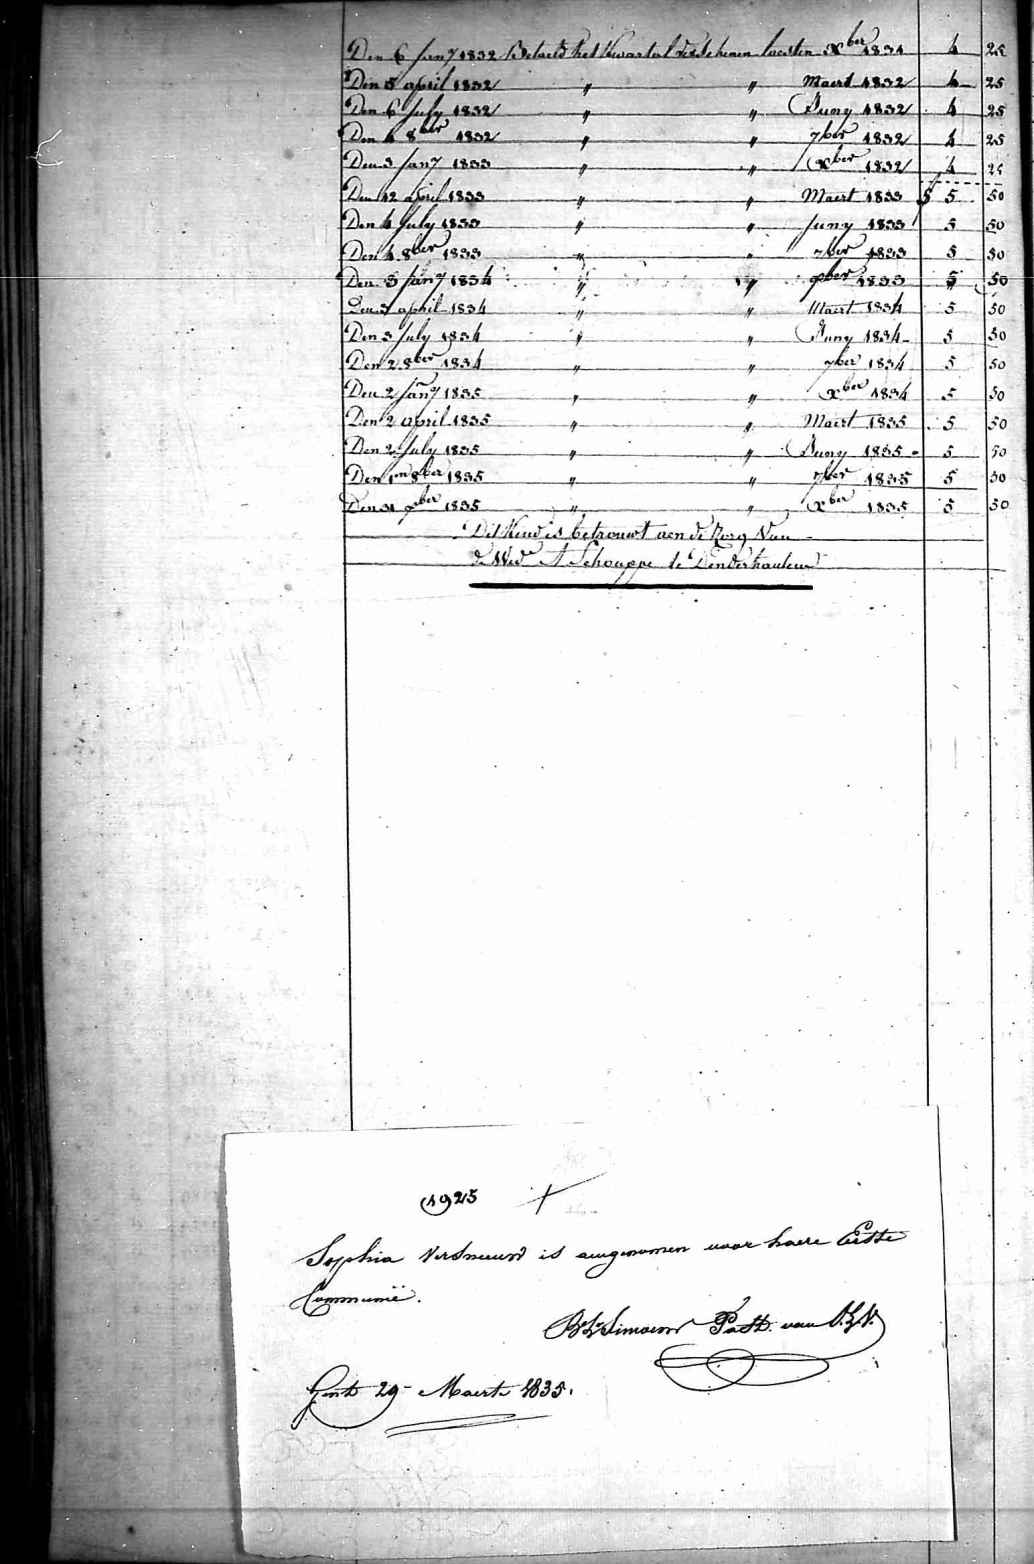 Den 6 Jany 1832 Betaeld het Kwartal verschenen laesten Xber 1831 4 25
Den 5 april 1832 " " Maert 1832 4 25
Den 6 July 1832 " " Juny 1832 4 25
Den 4 8ber 1832 " " 7ber 1832 4 25
Den 3 Jany 1833 " " Xber 1832 4 25
Den 12 april 1833 " " Maert 1833 5 50
Den 4 July 1833 " " Juny 1833 5 50
Den 4 8ber 1833 " " 7ber 1833 5 50
Den 3 Jany 1834 " " xber 1833 5 50
Den 3 april 1834 " " Maert 1834 5 50
Den 3 July 1834 " " Juny 1834 5 50
Den 2 8ber 1834 " " 7ber 1834 5 50
Den 2 Jany 1835 " " xber 1834 5 50
Den 2 april 1835 " " Maert 1835 5 50
Den 2 July 1835 " " Juny 1835 5 50
Den 1n 8ber 1835 " " 7ber 1835 5 50
Den 31 xber 1835 " " Xber 1835 5 50
Dit Kind is betrouwt aen de Zorg Van
de Wede A Schouppe te Denderhautem
1925
Sophia Versneuwd is aengenomen voor haere Eerste
Communië.
Simoens Past. van
Gent 29 Maert 1835.